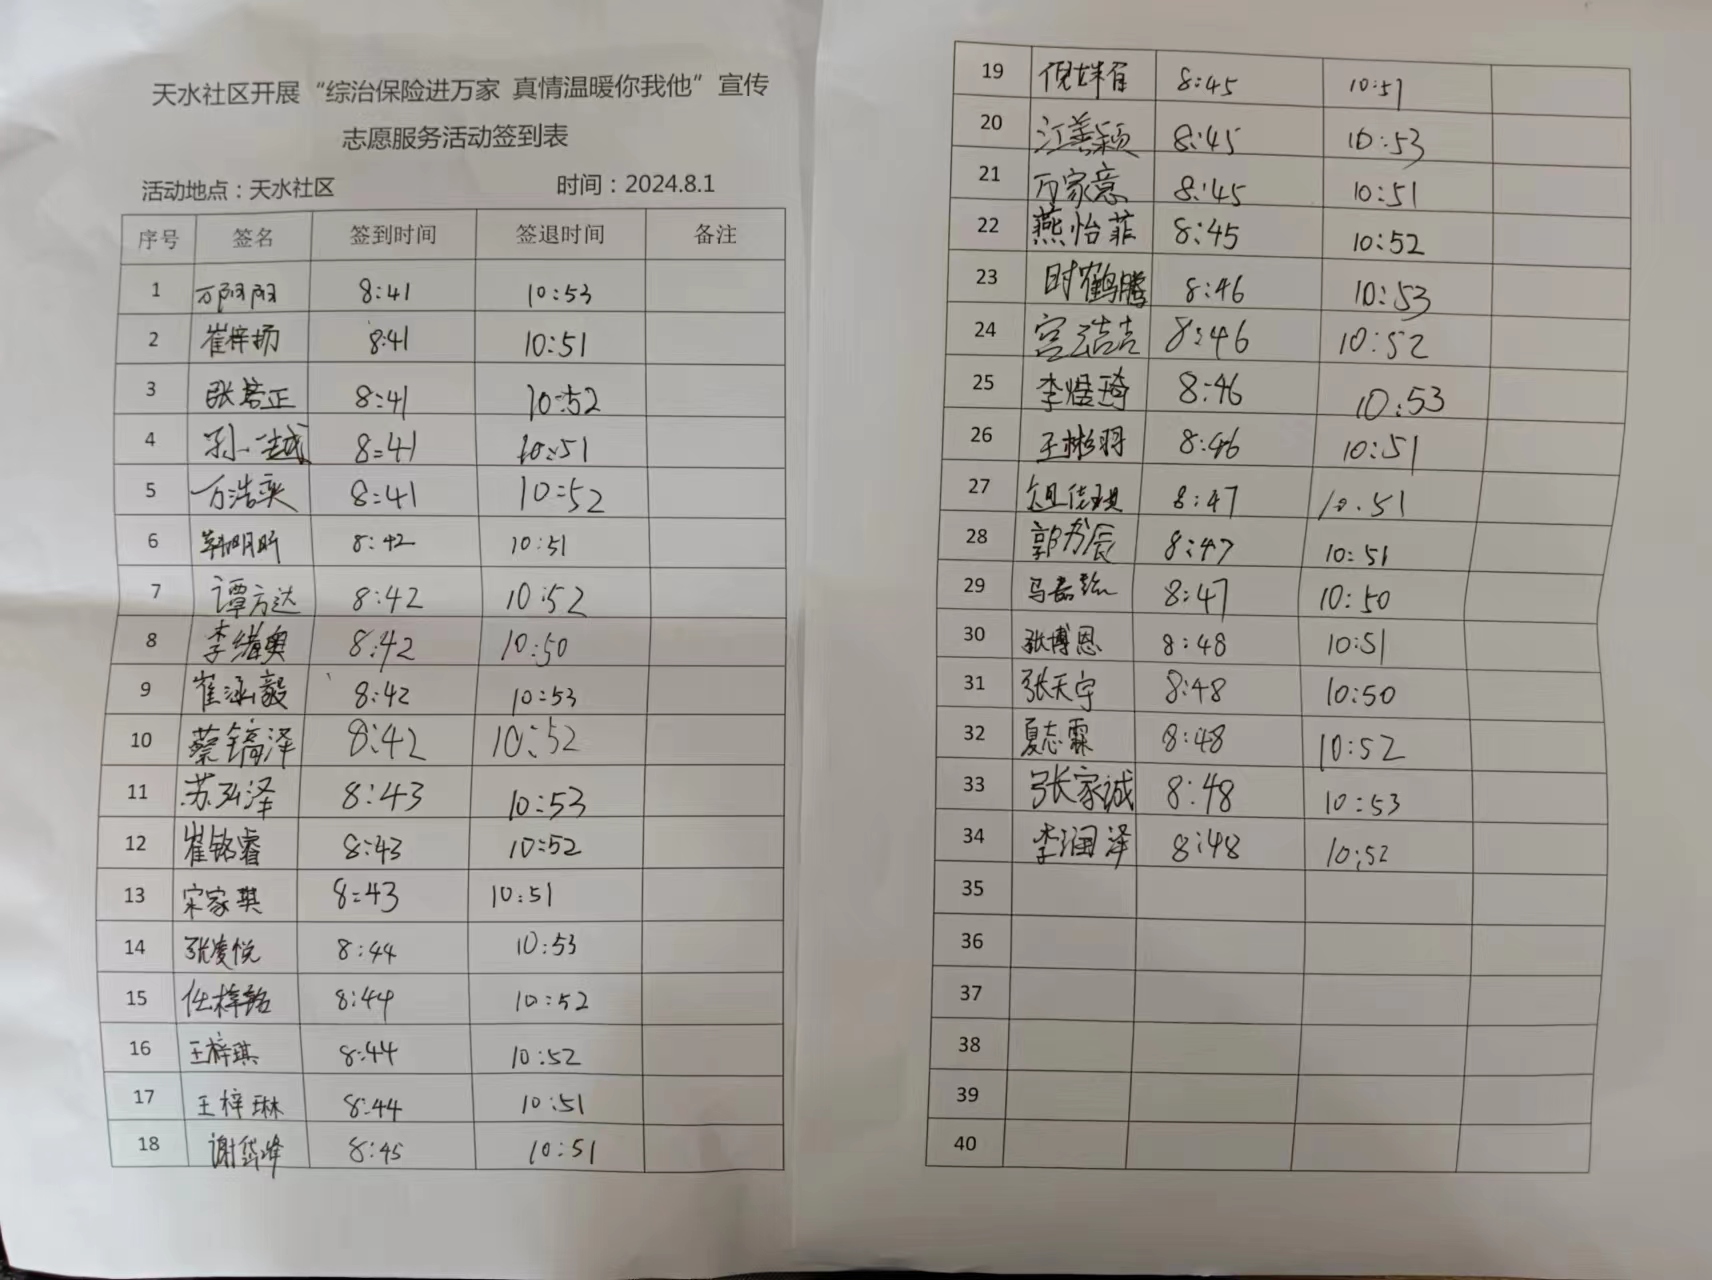 天水社区开展“综治保险进万家 真情温暖你我他”宣传
志愿服务活动签到表
活动地点：天水社区 时间：2024.8.1
序号 签名 签到时间 签退时间 备注
1 万阳阳 8:41 10:53
2 崔梓扬 8:41 10:51
3 张若正 8:41 10:52
4 孙一越 8:41 10:51
5 万浩奕 8:41 10:52
6 韩明昕 8:42 10:51
7 谭方达 8:42 10:52
8 李绪奥 8:42 10:50
9 崔涵毅 8:42 10:53
10 蔡镐泽 8:42 10:52
11 苏弘泽 8:43 10:53
12 崔铭睿 8:43 10:52
13 宋家琪 8:43 10:51
14 张凌悦 8:44 10:53
15 任梓铭 8:44 10:52
16 王梓琪 8:44 10:52
17 王梓琳 8:44 10:51
18 谢岱峰 8:45 10:51
19 8:45 10:51
20 江善颖 8:45 10:53
21 万家意 8:45 10:51
22 燕怡菲 8:45 10:52
23 时鹤腾 8:46 10:53
24 宫浩吉 8:46 10:52
25 李煜琦 8:46 10:53
26 王彬羽 8:46 10:51
27 8:47 10.51
28 郭力辰 8:47 10:51
29 8:47 10:50
30 张博恩 8:48 10:51
31 张天宇 8:48 10:50
32 夏志霖 8:48 10:52
33 张家诚 8:48 10:53
34 李润泽 8:48 10:52
35
36
37
38
39
40